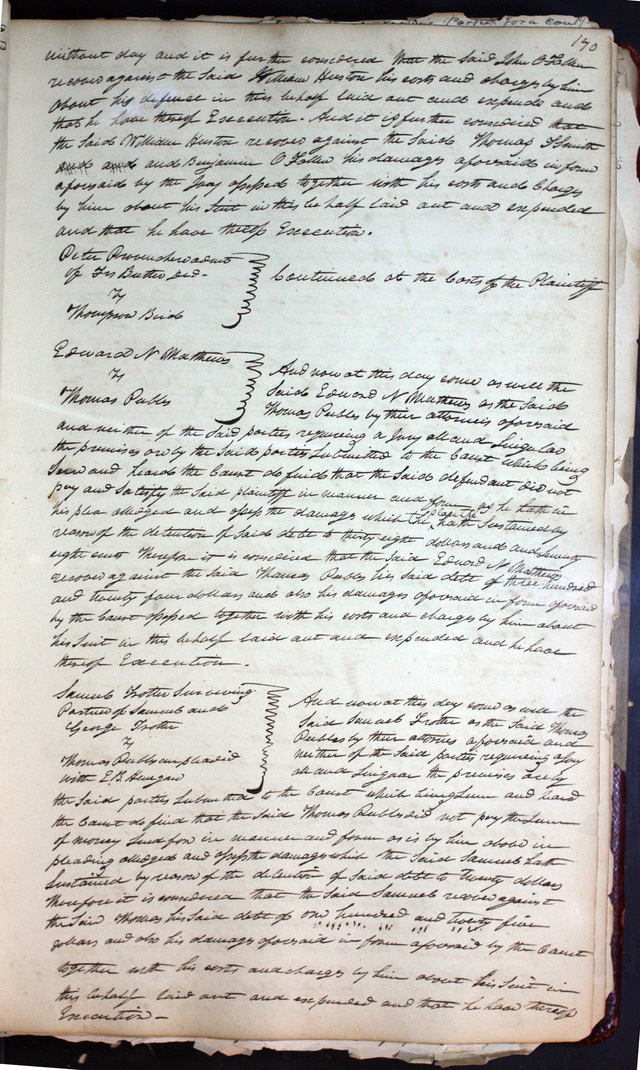 190
without day and it is further considered that the said John O Fallen
recover against the said William Huston his costs and charges by him
about his defence in this behalf laid out and expende and
that he have thereof Execution. And it is further considered that
the said William Huston recover against the said Thomas F Smith
and Benjamin O Fallen his damages aforesaid in form
aforesaid by the Jury assessed together with his costs and Charges
by him about his Suit in this behalf laid out and expended
and that he have thereof Execution.
Peter Provenchere admr
of Frs Butler Decd
vs
Thompson Bird
Continued at the Costs of the Plaintiff
Edward N Mathews
vs
Thomas Publs
And now at this day come as well the
said Edward N Mathews as the said
Thomas Publs by their attornies aforesaid
and neither of the said parties requiring a Jury all and Singular
the premises are by the said parties submitted to the Court which being
seen and heard the Court do find that the said defendant did not
pay and satisfy the said plaintiff in manner and form as he hath in
his plea alledged and assess the damages which the plaintiff hath sustained by
reason of the detention of said debt to thirty eight dollars and and twenty
eight cents Therefore it is considered that the said Edward N Mathews
recover against the said Thomas Publs his said debt of three hundred
and twenty four dollars and also his damages aforesaid in form aforesaid
by the Court assessed together with his costs and charges by him about
his Suit in this behalf laid out and expended and he have
thereof Execution.
Samuel Trotter Surviving
Partner of Samuel and
George Trotter
vs
Thomas Publs impleaded
with E. B.
And now at this day come as well the
said Samuel Trotter as the said Thomas
Publs by their attornies aforesaid and
neither of the said parties requiring a Jury
all and Singular the premises are by
the said parties submitted to the Court which being seen and heard
the Court do find that the said Thomas Publs did not pay the Sum
of money sued for in manner and form as is by him above in
pleading alledged and assess the damages which the said Samuel hath
sustained by reason of the detention of said debt to twenty dollars
Therefore it is considered that the said Samuel recover against
the said Thomas his said debt of one hundred and twenty five
dollars and also his damages aforesaid in form aforesaid by the Court
together with his costs and charges by him about his Suit in
this behalf laid out and expended and that he have thereof
Execution —